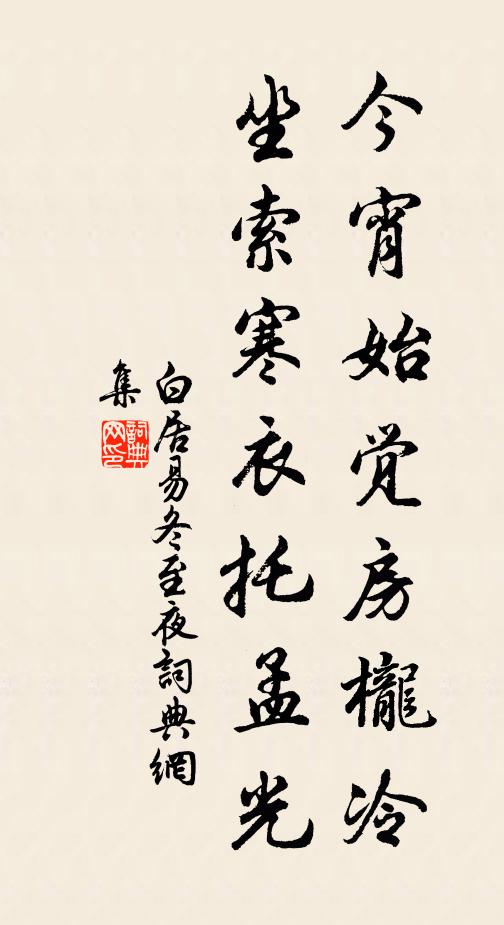 今宵始觉房櫳冷
坐索寒衣托孟光
白居易冬至夜詞典網
集
詞典
网印